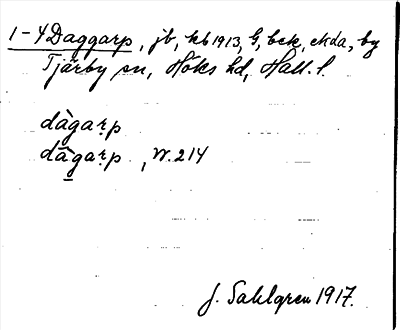 1-4 Daggarp, jb, kb 1913, G, bck, ekda, by
Tjärby sn, Höks hd, Hall. l.
dàgaṛp
dâ̱gaṛp, W. 214
J. Sahlgren 1917.